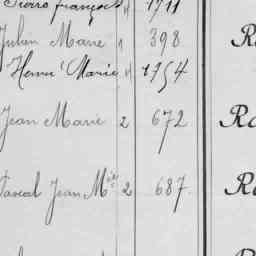 Pierre françois 4 1711
Julien Marie 1 398 R
Henri Marie 4 1754
Jean Marie 2 672 Ro
Pascal Jean Mie 2 687 Ro